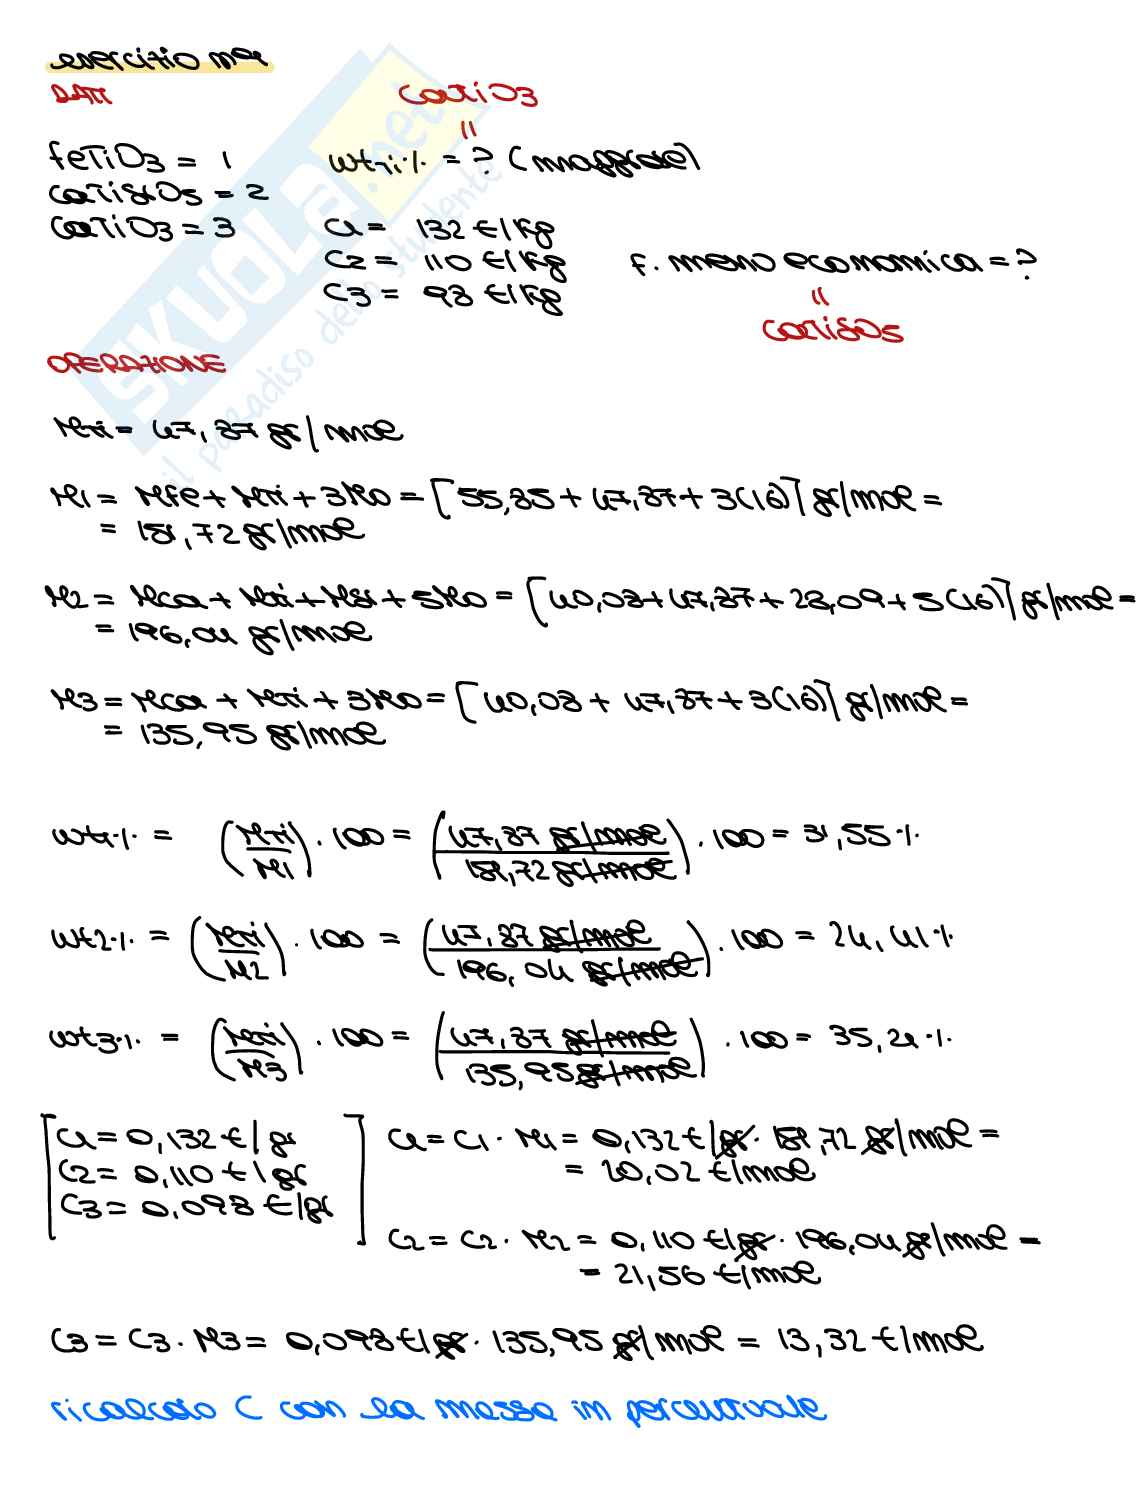 esercizio n°1
DATI
CaTiO3
"
FeTiO3 = 1
wtTi% = ? (maggiore)
CaTiSiO5 = 2
CaTiO3 = 3
C1 = 132 €/Kg
C2 = 110 €/Kg
F. meno economica = ?
C3 = 98 €/Kg
"
CaTiSiO5
OPERAZIONE
MTi = 47,87 gr/mol
M1 = MFe + MTi + 3MO = [55,85 + 47,87 + 3(16)] gr/mol =
= 151,72 gr/mol
M2 = MCa + MTi + MSi + 5MO = [40,08 + 47,87 + 28,09 + 5(16)] gr/mol =
= 196,04 gr/mol
M3 = MCa + MTi + 3MO = [40,08 + 47,87 + 3(16)] gr/mol =
= 135,95 gr/mol
wt1% = (MTi/M1) · 100 = (47,87 gr/mol / 151,72 gr/mol) · 100 = 31,55%
wt2% = (MTi/M2) · 100 = (47,87 gr/mol / 196,04 gr/mol) · 100 = 24,41%
wt3% = (MTi/M3) · 100 = (47,87 gr/mol / 135,95 gr/mol) · 100 = 35,21%
[C1 = 0,132 €/gr
C2 = 0,110 €/gr
C3 = 0,098 €/gr]
C1 = C1 · M1 = 0,132 €/gr · 151,72 gr/mol =
= 20,02 €/mol
C2 = C2 · M2 = 0,110 €/gr · 196,04 gr/mol =
= 21,56 €/mol
C3 = C3 · M3 = 0,098 €/gr · 135,95 gr/mol = 13,32 €/mol
ricalcolo C con la massa in percentuale
SKUOLA.net
il paradiso dello studente